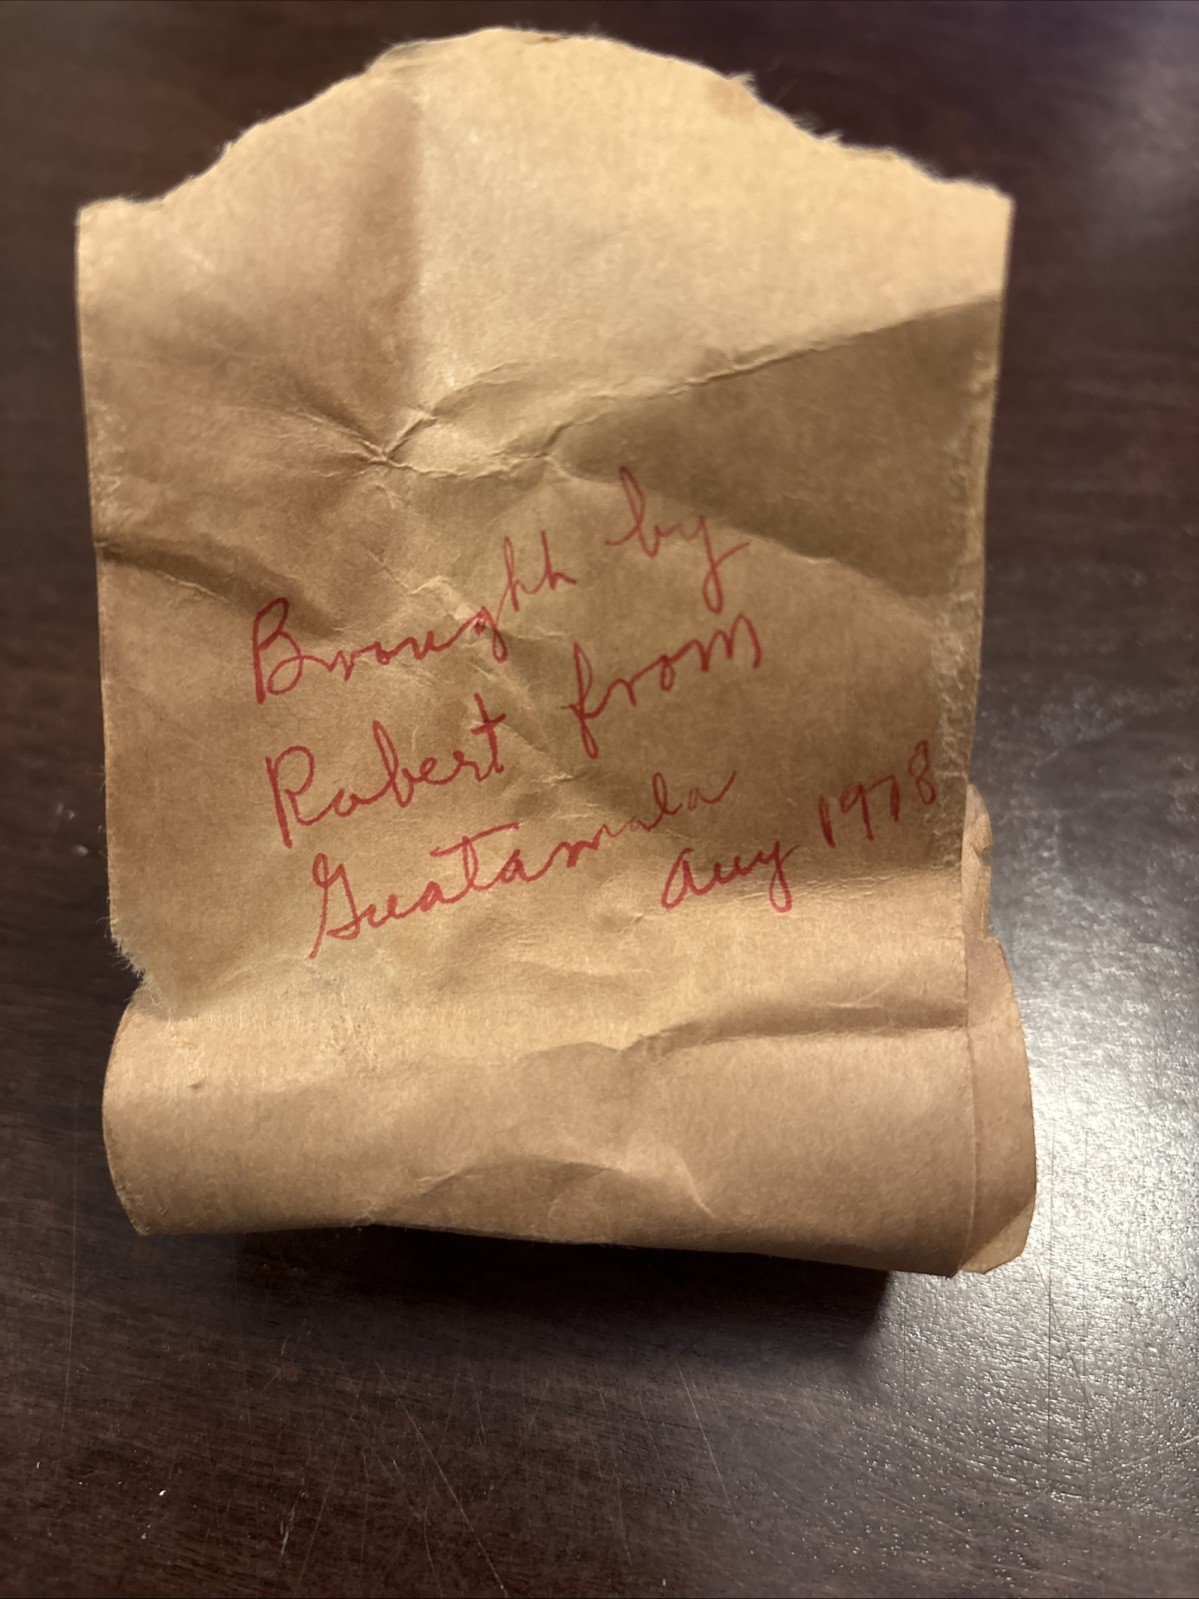 Brought by
Robert from
Guatamala
Aug 1978